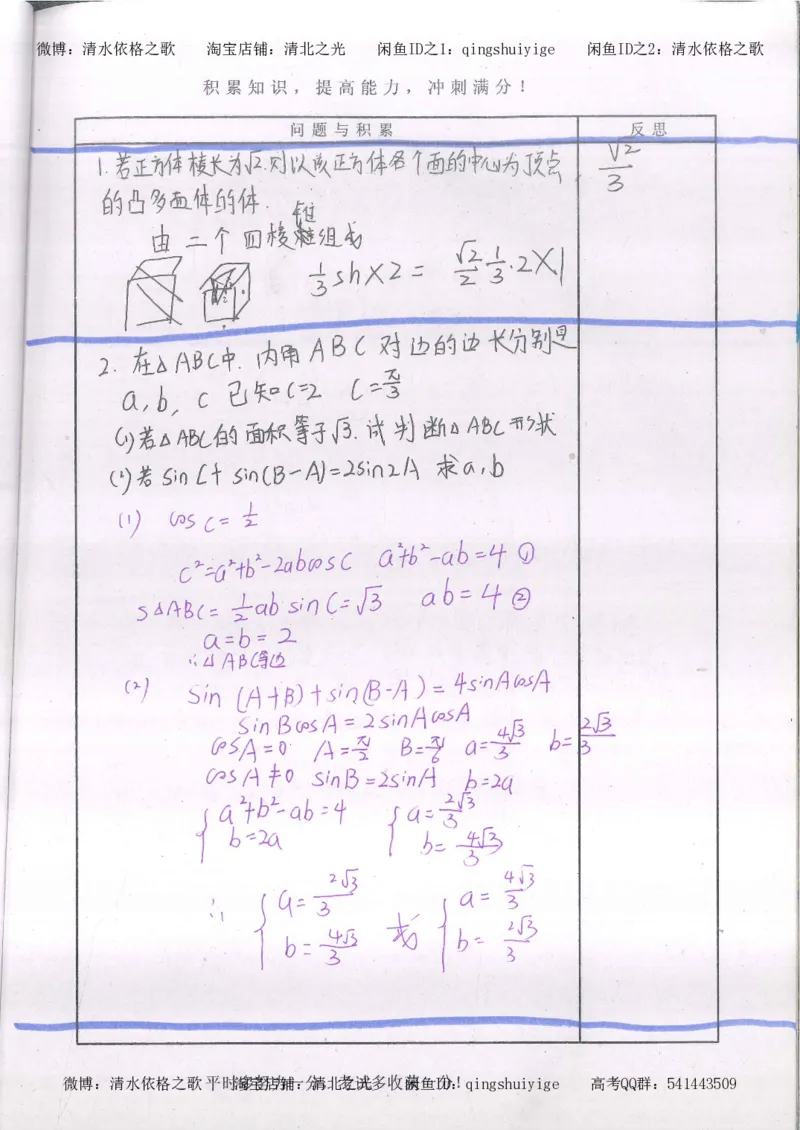 微博：清水依格之歌 淘宝店铺：清北之光 闲鱼ID之1：qingshuiyige 闲鱼ID之2：清水依格之歌
积累知识，提高能力，冲刺满分！
问题与积累 反思
1.若正方体棱长为√2.则以该正方体各个面的中心为顶点
的凸多面体的体.
√2/3
锥
由二个四棱组成
1/3 sh×2 = √2/2 1/3·2×1
2. 在△ABC中.内角ABC对边的边长分别是
a,b,c 已知C=2 C=π/3
(1)若△ABC的面积等于√3.试判断△ABC形状
(2)若 sinC+sin(B-A)=2sin2A 求a,b
(1) cosC=1/2
c²=a²+b²-2abcosC a²+b²-ab=4 ①
S△ABC=1/2absinC=√3 ab=4 ②
a=b=2
∴△ABC等边
(2) sin(A+B)+sin(B-A)=4sinAcosA
sinBcosA=2sinAcosA
cosA=0 A=π/2 B=π/6 a=4√3/3 b=2√3/3
cosA≠0 sinB=2sinA b=2a
{a²+b²-ab=4 {a=2√3/3
b=2a b=4√3/3
∴ {a=2√3/3 或 {a=4√3/3
b=4√3/3 b=2√3/3
微博：清水依格之歌 淘宝店铺：清北之光 闲鱼ID：qingshuiyige 高考QQ群：541443509